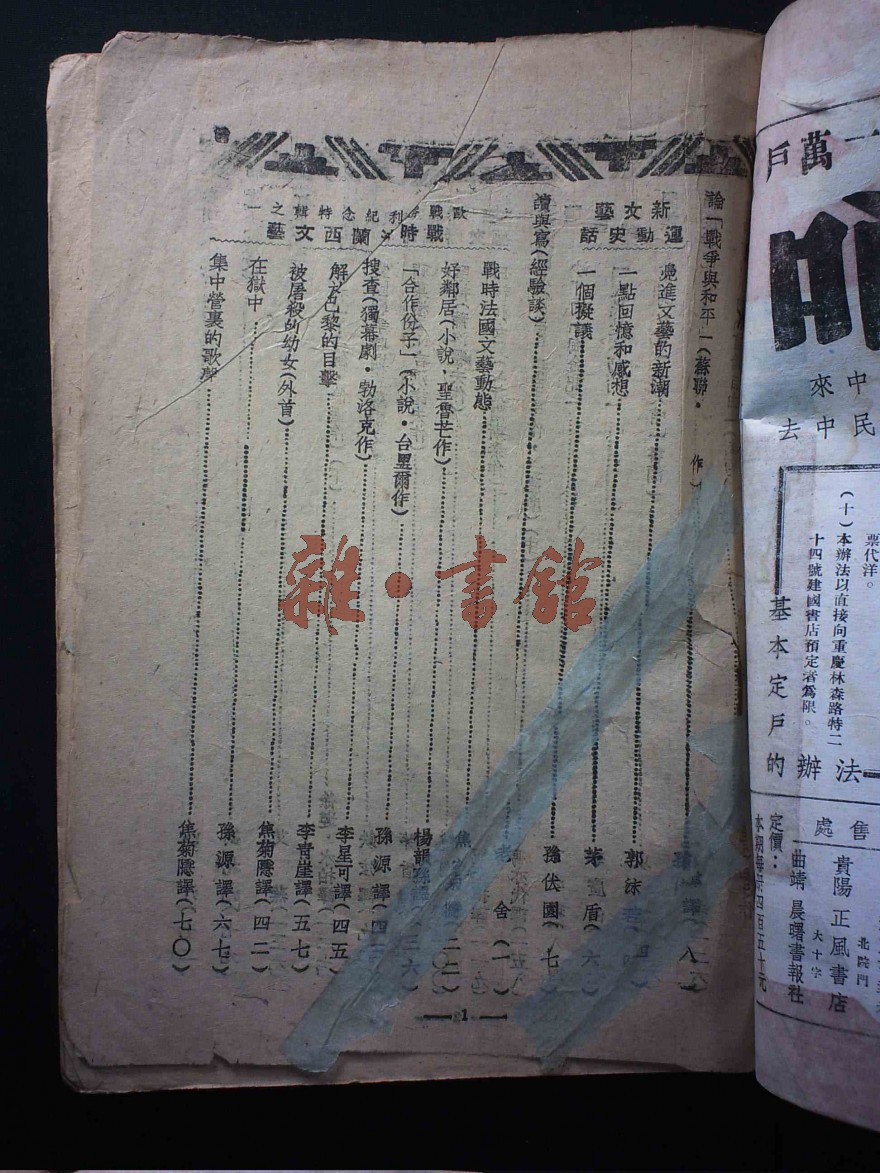 論「戰爭與和平」(蘇聯・　作)
譯(一八)
新文藝
運動史話
進文藝的新潮
郭沫
一點回憶和感想
茅盾(六)
一個擬議
孫伏園(七)
讀與寫(經驗談)
老舍(一)
歐戰勝利紀念特輯之一
戰時法蘭西文藝
戰時法國文藝動態
焦 (二二)
好鄰居(小說・聖魯芒作)
楊 (三六)
「合作份子」(小說・台里爾作)
孫源譯(四
搜查(獨幕劇・勃洛克作)
李星可譯(四五)
解放巴黎的目擊
李青崖譯(五七)
被屠殺的幼女(外首)
焦菊隱譯(四二)
在獄中
孫源譯(六七)
集中營裏的歌聲
焦菊隱譯(七〇)
1
一萬戶
中民
來中去
票代洋。
(十)本辦法以直接向重慶林森路特二
十四號建國書店預定者爲限。
基本定戶的辦法
售處
北院門
貴陽 正風書店
大十字
曲靖 晨曙書報社
定價:
本期每册四百五十元
雜・書館